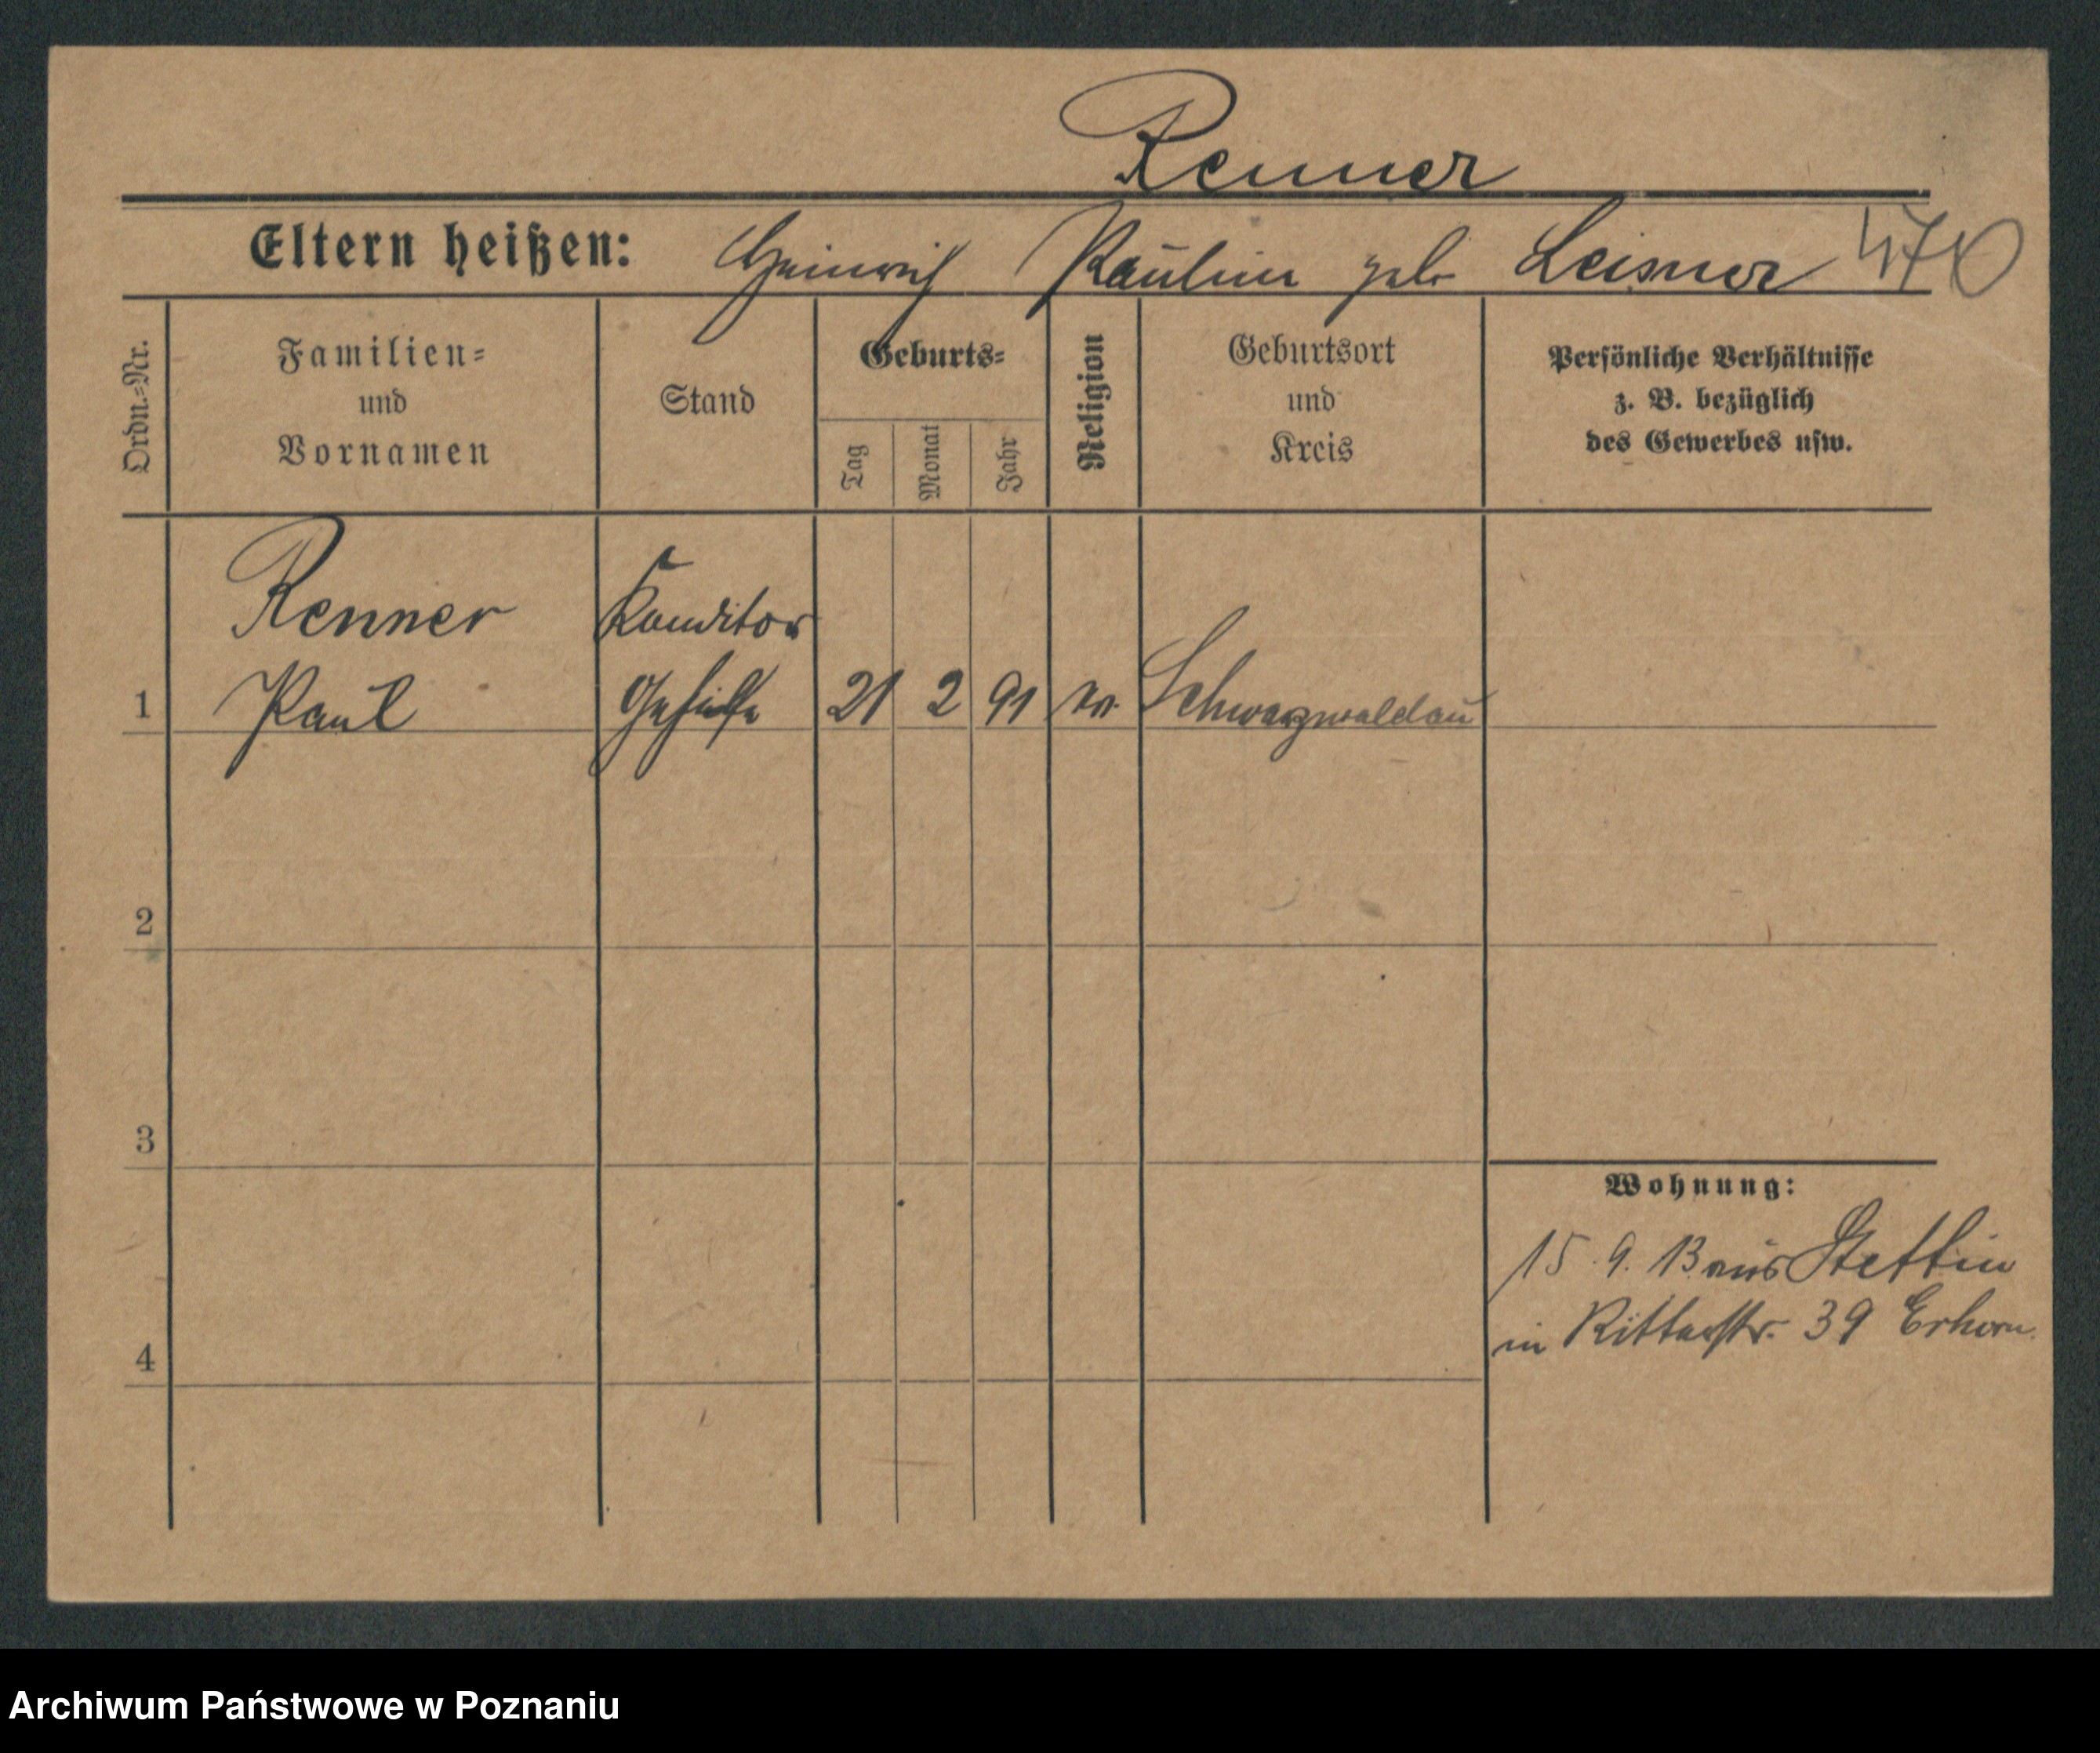 Renner
Eltern heißen: Heinrich Pauline geb. Leisner 470
Ordn.=Nr.
Familien=
und
Vornamen
Stand
Geburts=
Tag
Monat
Jahr
Religion
Geburtsort
und
Kreis
Persönliche Verhältnisse
z. B. bezüglich
des Gewerbes usw.
Renner Konditor
1 Paul Gehilfe 21 2 91 ev. Schwarzwaldau
2
3
Wohnung:
15. 9. 13 aus Stettin
in Ritterstr. 39 Erhorn
4
Archiwum Państwowe w Poznaniu